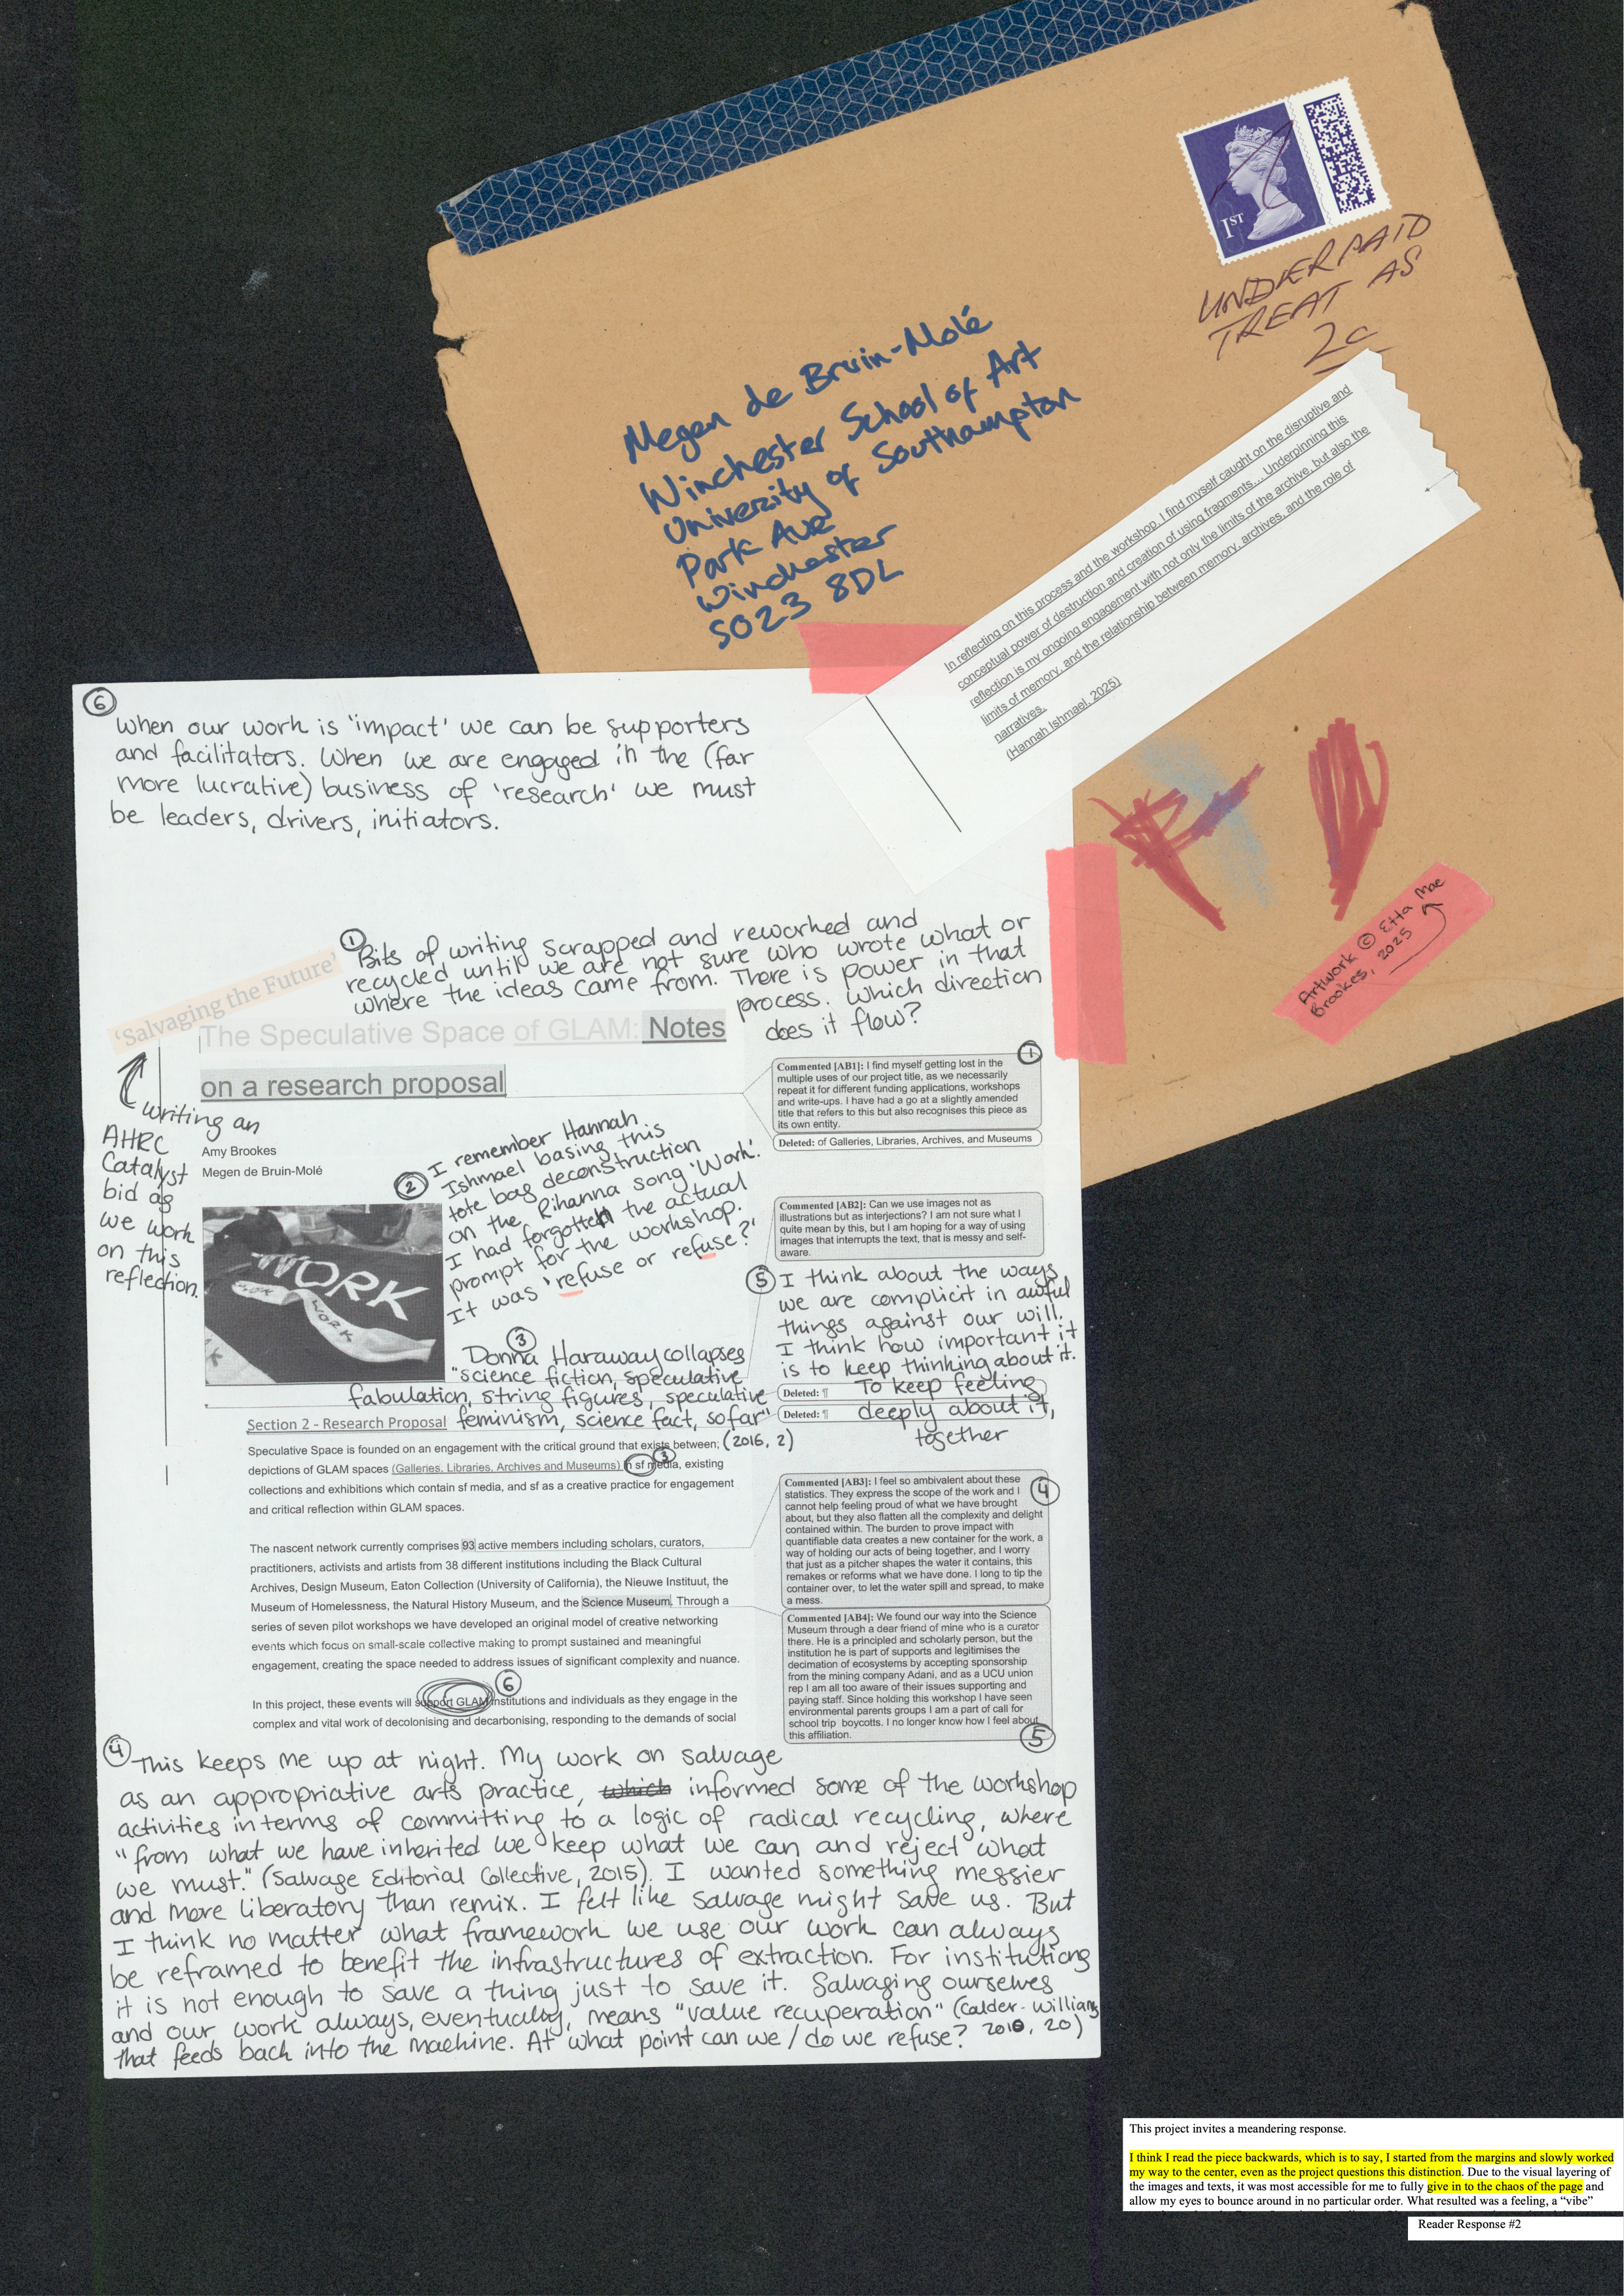 1ST
UNDERPAID
TREAT AS
2c
Megen de Bruin-Molé
Winchester School of Art
University of Southampton
Park Ave
Winchester
SO23 8DL
In reflecting on this process and the workshop, I find myself caught on the disruptive and
conceptual power of destruction and creation of using fragments... Underpinning this
reflection is my ongoing engagement with not only the limits of the archive, but also the
limits of memory, and the relationship between memory, archives, and the role of
narratives.
(Hannah Ishmael, 2025)
Artwork © Etta Mae
Brookes, 2025
6
When our work is 'impact' we can be supporters
and facilitators. When we are engaged in the (far
more lucrative) business of 'research' we must
be leaders, drivers, initiators.
1
Bits of writing scrapped and reworked and
recycled until we are not sure who wrote what or
where the ideas came from. There is power in that
process. Which direction
does it flow?
'Salvaging the Future'
The Speculative Space of GLAM: Notes
on a research proposal
writing an
AHRC
Catalyst
bid as
we work
on this
reflection.
Amy Brookes
Megen de Bruin-Molé
Commented [AB1]: I find myself getting lost in the
multiple uses of our project title, as we necessarily
repeat it for different funding applications, workshops
and write-ups. I have had a go at a slightly amended
title that refers to this but also recognises this piece as
its own entity.
1
Deleted: of Galleries, Libraries, Archives, and Museums
2
I remember Hannah
Ishmael basing this
tote bag deconstruction
on the Rihanna song 'Work'.
I had forgotten the actual
prompt for the workshop.
It was 'refuse or refuse?'
WORK
WORK
WORK
Commented [AB2]: Can we use images not as
illustrations but as interjections? I am not sure what I
quite mean by this, but I am hoping for a way of using
images that interrupts the text, that is messy and self-
aware.
5
I think about the ways
we are complicit in awful
things against our will.
I think how important it
is to keep thinking about it.
To keep feeling
deeply about it,
together
Deleted: ¶
Deleted: ¶
3
Donna Haraway collapses
"science fiction, speculative
fabulation, string figures, speculative
feminism, science fact, so far"
(2016, 2)
Section 2 - Research Proposal
Speculative Space is founded on an engagement with the critical ground that exists between;
depictions of GLAM spaces (Galleries, Libraries, Archives and Museums) in sf media, existing
collections and exhibitions which contain sf media, and sf as a creative practice for engagement
and critical reflection within GLAM spaces.
3
The nascent network currently comprises 93 active members including scholars, curators,
practitioners, activists and artists from 38 different institutions including the Black Cultural
Archives, Design Museum, Eaton Collection (University of California), the Nieuwe Instituut, the
Museum of Homelessness, the Natural History Museum, and the Science Museum. Through a
series of seven pilot workshops we have developed an original model of creative networking
events which focus on small-scale collective making to prompt sustained and meaningful
engagement, creating the space needed to address issues of significant complexity and nuance.
6
In this project, these events will support GLAM institutions and individuals as they engage in the
complex and vital work of decolonising and decarbonising, responding to the demands of social
Commented [AB3]: I feel so ambivalent about these
statistics. They express the scope of the work and I
cannot help feeling proud of what we have brought
about, but they also flatten all the complexity and delight
contained within. The burden to prove impact with
quantifiable data creates a new container for the work, a
way of holding our acts of being together, and I worry
that just as a pitcher shapes the water it contains, this
remakes or reforms what we have done. I long to tip the
container over, to let the water spill and spread, to make
a mess.
4
Commented [AB4]: We found our way into the Science
Museum through a dear friend of mine who is a curator
there. He is a principled and scholarly person, but the
institution he is part of supports and legitimises the
decimation of ecosystems by accepting sponsorship
from the mining company Adani, and as a UCU union
rep I am all too aware of their issues supporting and
paying staff. Since holding this workshop I have seen
environmental parents groups I am a part of call for
school trip boycotts. I no longer know how I feel about
this affiliation.
5
4
This keeps me up at night. My work on salvage
as an appropriative arts practice, which informed some of the workshop
activities in terms of committing to a logic of radical recycling, where
"from what we have inherited we keep what we can and reject what
we must." (Salvage Editorial Collective, 2015). I wanted something messier
and more liberatory than remix. I felt like salvage might save us. But
I think no matter what framework we use our work can always
be reframed to benefit the infrastructures of extraction. For institutions
it is not enough to save a thing just to save it. Salvaging ourselves
and our work always, eventually, means "value recuperation" (Calder-Williams
2010, 20)
that feeds back into the machine. At what point can we / do we refuse?
This project invites a meandering response.
I think I read the piece backwards, which is to say, I started from the margins and slowly worked
my way to the center, even as the project questions this distinction. Due to the visual layering of
the images and texts, it was most accessible for me to fully give in to the chaos of the page and
allow my eyes to bounce around in no particular order. What resulted was a feeling, a "vibe"
Reader Response #2